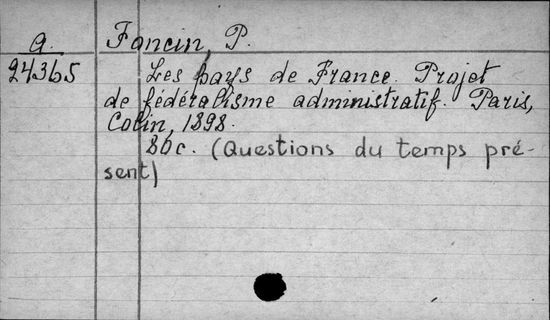 a. Foncin, P.
24365 Les pays de France. Projet
de fédéralisme administratif. Paris,
Colin, 1898.
80c. (Questions du temps pré-
sent)